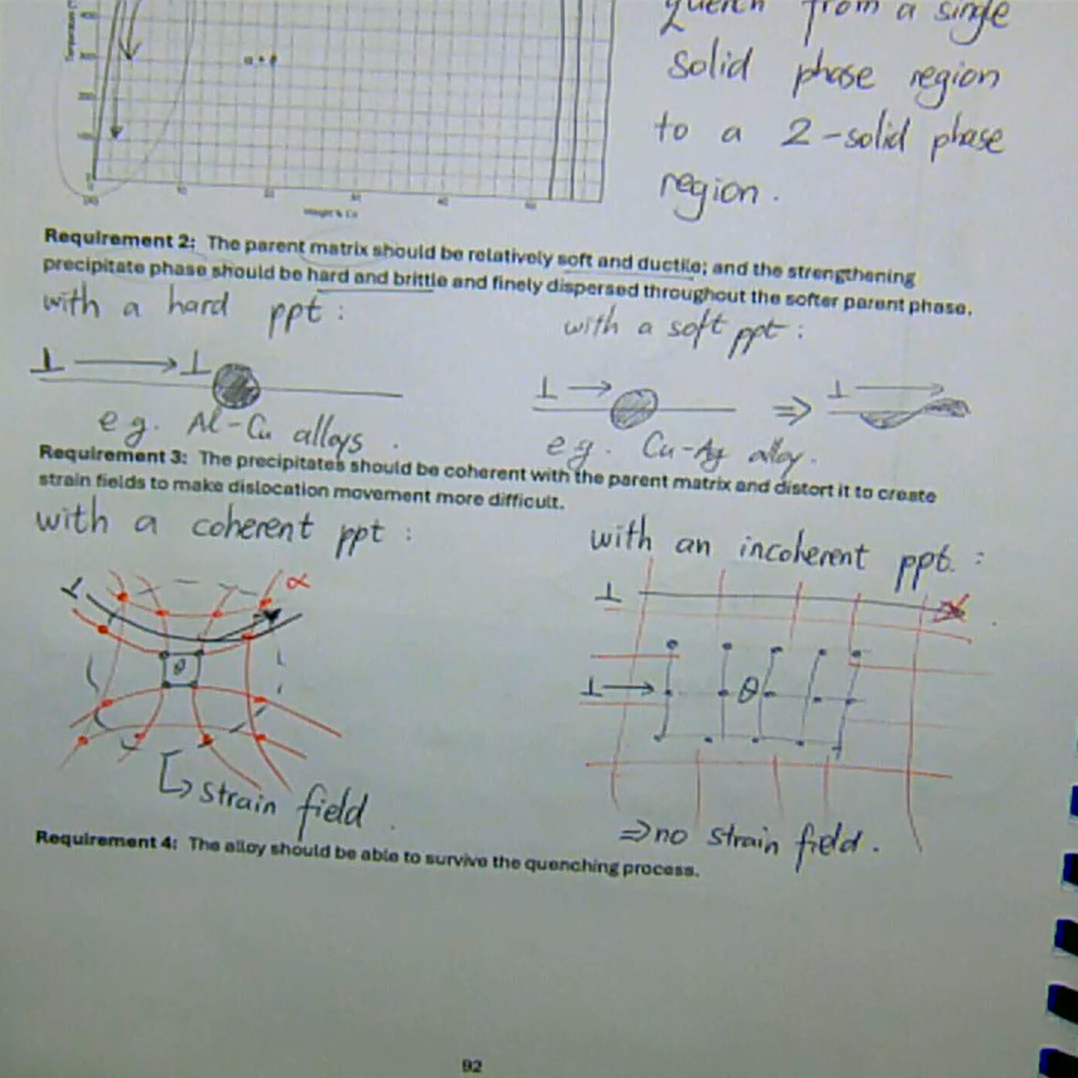 quench from a single
solid phase region
to a 2-solid phase
region.
α + θ
Requirement 2: The parent matrix should be relatively soft and ductile; and the strengthening
precipitate phase should be hard and brittle and finely dispersed throughout the softer parent phase.
with a hard ppt :
with a soft ppt :
⊥ → ⊥
⊥ → ⇒ ⊥ →
e.g. Al-Cu alloys.
e.g. Cu-Ag alloy.
Requirement 3: The precipitates should be coherent with the parent matrix and distort it to create
strain fields to make dislocation movement more difficult.
with a coherent ppt :
with an incoherent ppt. :
⊥ α
θ
↳ strain field.
⊥
⊥ → θ
⇒ no strain field.
Requirement 4: The alloy should be able to survive the quenching process.
92